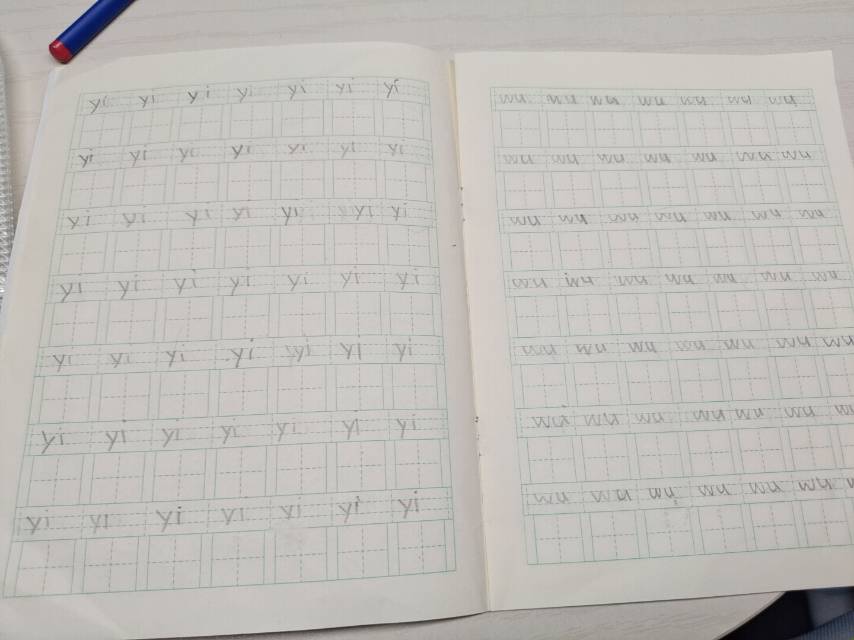 yi yi yi yi yi yi yi
yi yi yi yi yi yi yi
yi yi yi yi yi yi yi
yi yi yi yi yi yi yi
yi yi yi yi yi yi yi
yi yi yi yi yi yi yi
yi yi yi yi yi yi yi
wu wu wu wu wu wu wu
wu wu wu wu wu wu wu
wu wu wu wu wu wu wu
wu wu wu wu wu wu wu
wu wu wu wu wu wu wu
wu wu wu wu wu wu
wu wu wu wu wu wu